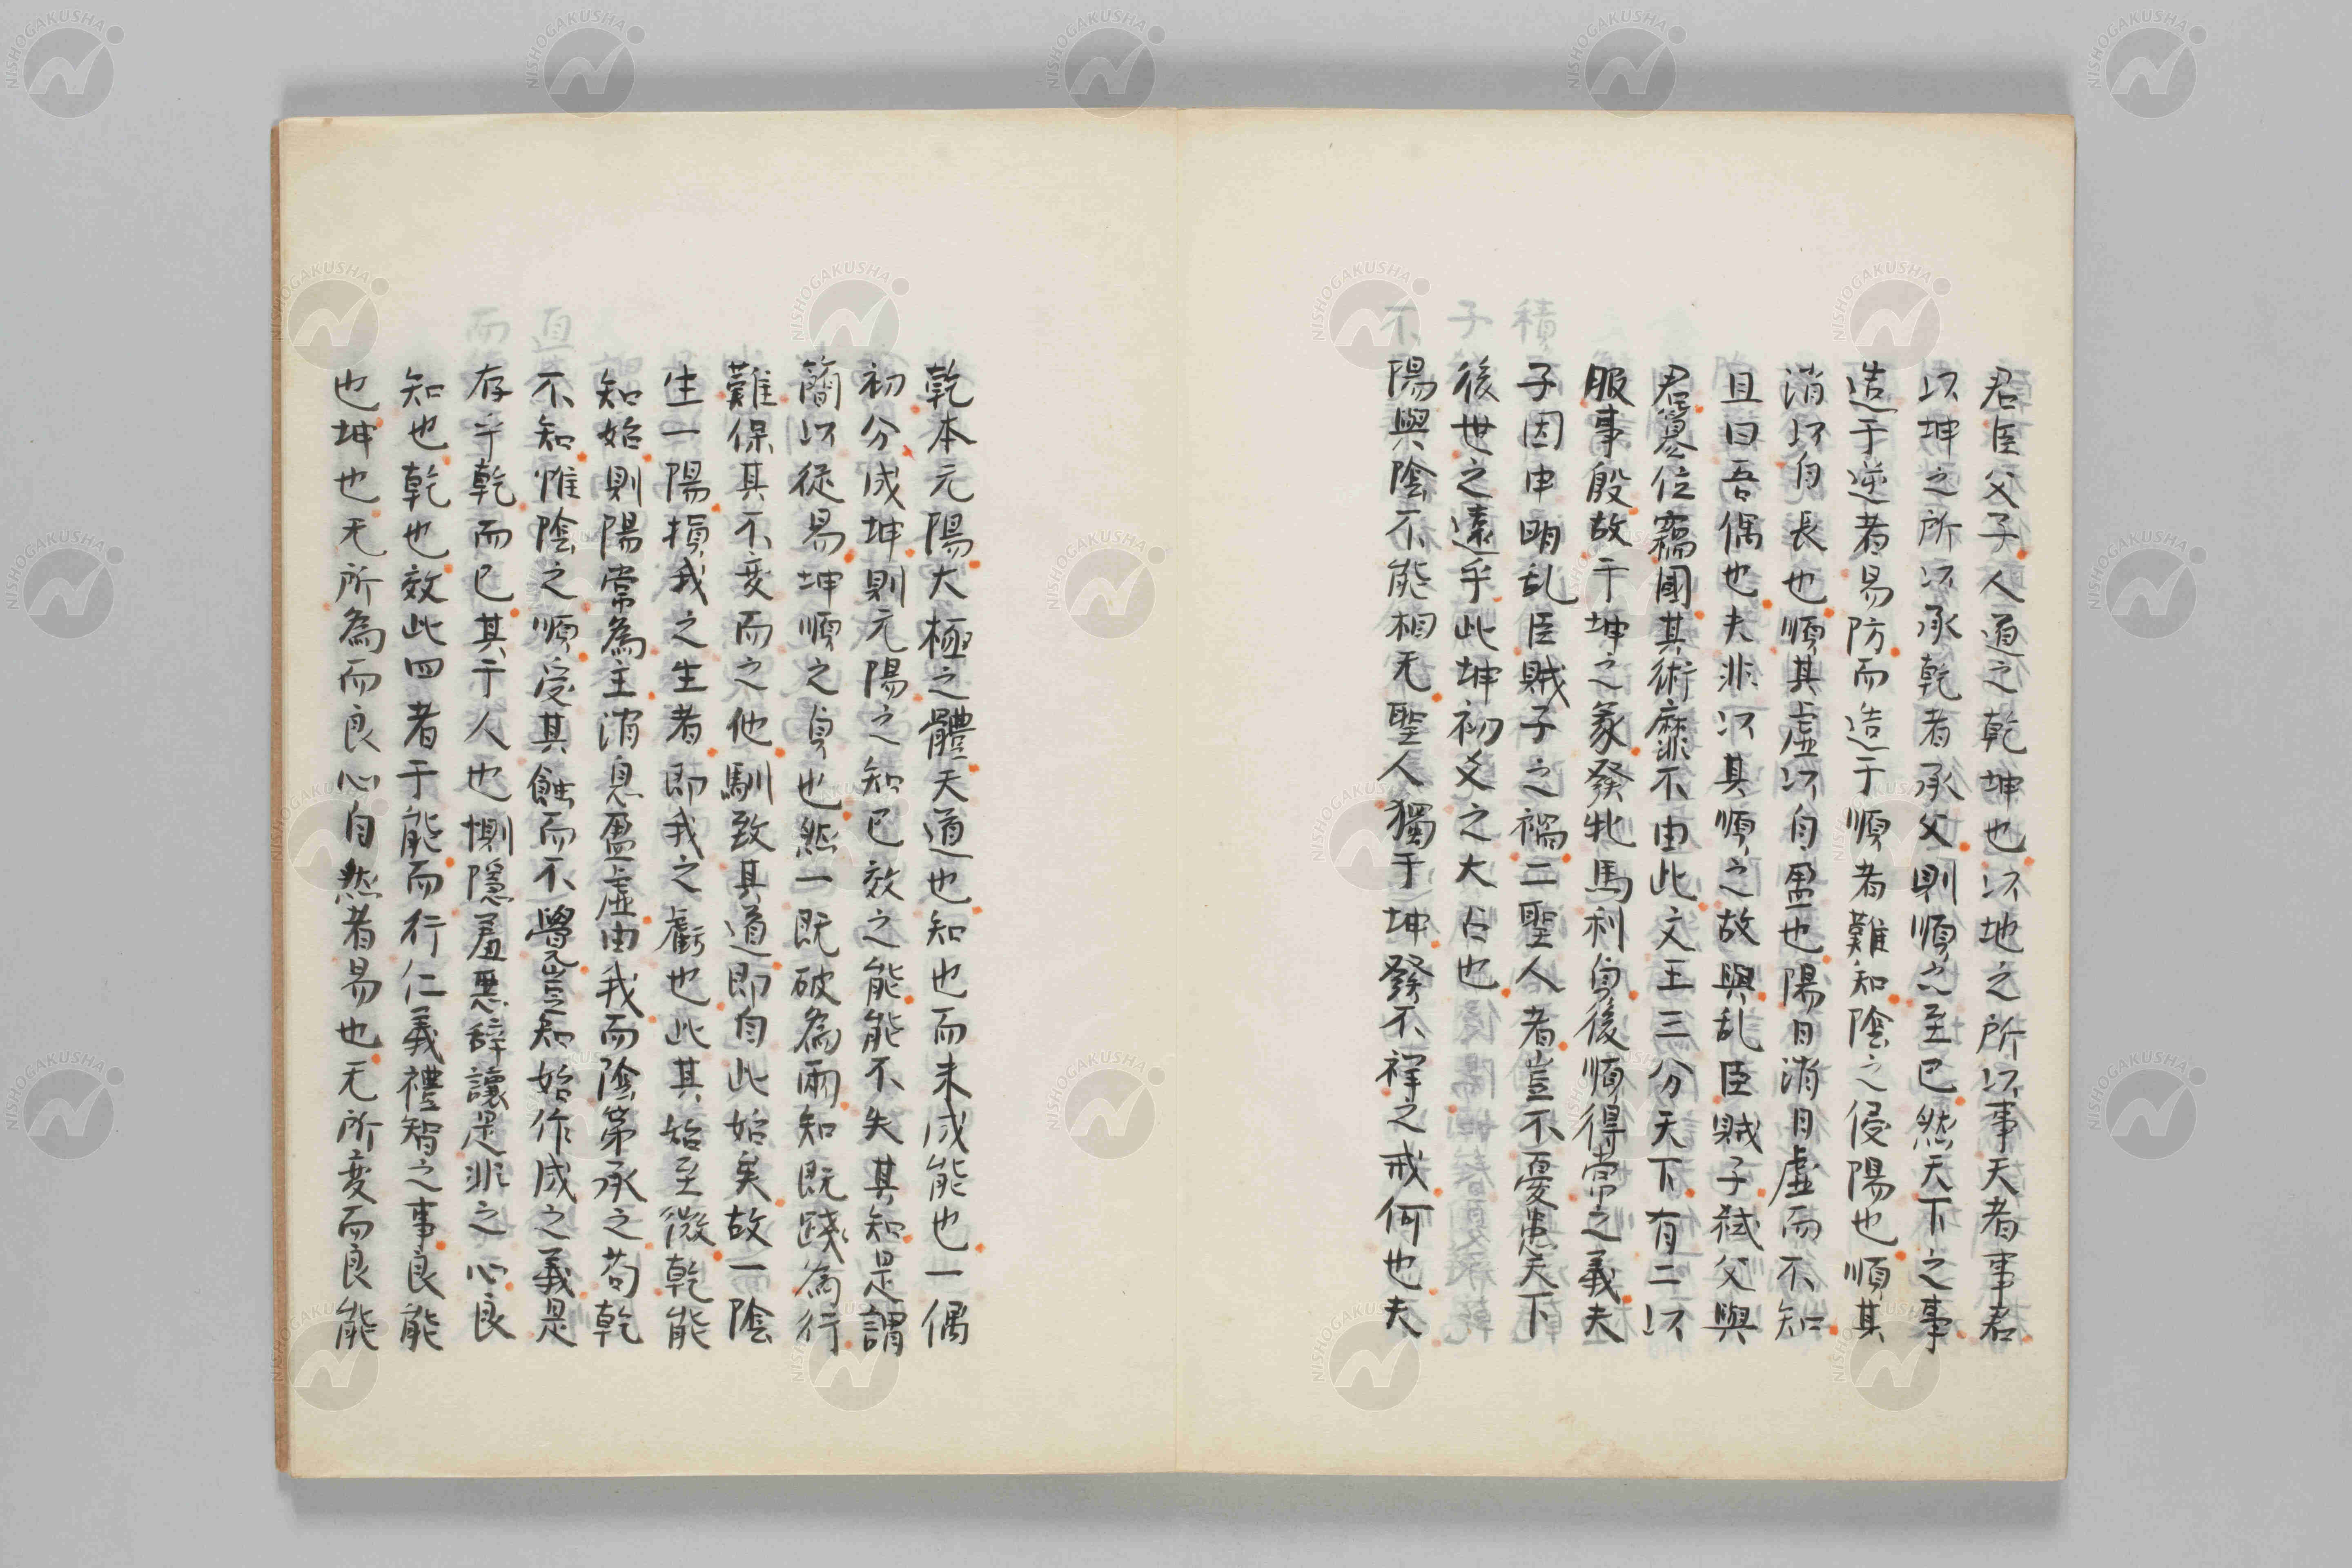 君臣父子人道之乾坤也以地之所以事天者事君
以坤之所以承乾者承父則順之至已然天下之事
造于逆者易防而造于順者難知陰之侵陽也順其
消以自長也順其虛以自盈也陽日消日虛而不知
且曰吾偶也夫非以其順之故與乱臣賊子弒父與
君簒位竊國其術靡不由此文王三分天下有二以
服事殷故于坤之彖發牝馬利貞後順得常之義夫
子因申明乱臣賊子之禍二聖人者豈不憂患天下
後世之遠乎此坤初爻之大占也
陽與陰不能相无聖人獨于坤發不祥之戒何也夫
乾本元陽大極之體天道也知也而未成能也一偶
初分成坤則元陽之知已效之能能不失其知是謂
簡以從易坤順之貞也然一既破為兩知既踐為行
難保其不变而之他馴致其道即自此始矣故一陰
生一陽損我之生者即我之虧也此其始至微乾能
知始則陽常為主消息盈虛由我而陰第承之苟乾
不知惟陰之順受其蝕而不覺豈知始作成之義是
存乎乾而已其于人也惻隱羞悪辞讓是非之心良
知也乾也效此四者于能而行仁義禮智之事良能
也坤也无所為而良心自然者易也无所变而良能
NISHOGAKUSHA